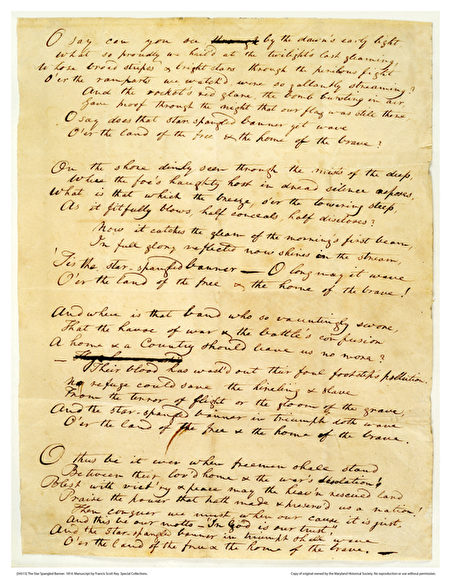 O say can you see ~~through~~ by the dawn's early light
What so proudly we hail'd at the twilight's last gleaming,
Whose broad stripes & bright stars through the perilous fight
O'er the ramparts we watch'd were so gallantly streaming?
And the rocket's red glare, the bomb bursting in air,
Gave proof through the night that our flag was still there
O say does that star-spangled banner yet wave
O'er the land of the free & the home of the brave?
On the shore dimly seen through the mists of the deep,
Where the foe's haughty host in dread silence reposes,
What is that which the breeze, o'er the towering steep,
As it fitfully blows, half conceals, half discloses?
Now it catches the gleam of the morning's first beam,
In full glory reflected now shines in the stream,
'Tis the star-spangled banner — O long may it wave
O'er the land of the free & the home of the brave!
And where is that band who so vauntingly swore,
That the havoc of war & the battle's confusion
A home & a Country should leave us no more?
—
Their blood has wash'd out their foul footstep's pollution.
No refuge could save the hireling & slave
From the terror of flight or the gloom of the grave,
And the star-spangled banner in triumph doth wave
O'er the land of the free & the home of the brave.
O thus be it ever when freemen shall stand
Between their lov'd home & the war's desolation!
Blest with vict'ry & peace may the heav'n rescued land
Praise the power that hath made & preserv'd us a nation!
Then conquer we must, when our cause it is just,
And this be our motto - "In God is our trust,"
And the star-spangled banner in triumph shall wave
O'er the land of the free & the home of the brave. —
[54315] The Star Spangled Banner. 1814. Manuscript by Francis Scott Key. Special Collections.
Copy of original owned by the Maryland Historical Society. No reproduction or use without permission.